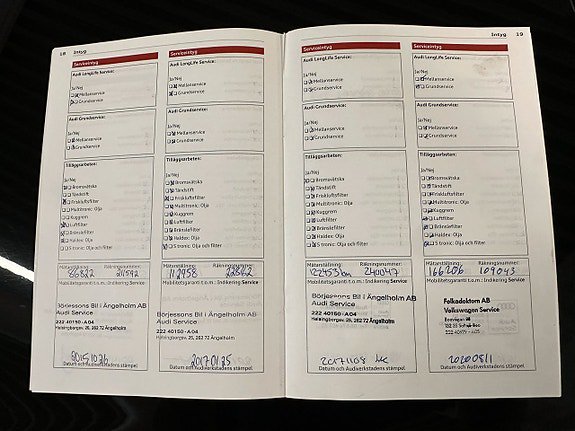 18 Intyg
Serviceintyg
Audi LongLife Service:
Ja/Nej
Mellanservice
Grundservice
Audi Grundservice:
Ja/Nej
Mellanservice
Grundservice
Tilläggsarbeten:
Ja/Nej
Bromsvätska
Tändstift
Friskluftsfilter
Multitronic: Olja
Kuggrem
Luftfilter
Bränslefilter
Haldex: Olja
S tronic: Olja och filter
Mätarställning: Räkningsnummer:
86822
Mobilitetsgaranti t.o.m.: Indikering Service
Börjessons Bil i Ängelholm AB
Audi Service
222 40150 - A04
Helsingborgsv. 25, 262 72 Ängelholm
20151026
Datum och Audiverkstadens stämpel
Serviceintyg
Audi LongLife Service:
Ja/Nej
Mellanservice
Grundservice
Audi Grundservice:
Ja/Nej
Mellanservice
Grundservice
Tilläggsarbeten:
Ja/Nej
Bromsvätska
Tändstift
Friskluftsfilter
Multitronic: Olja
Kuggrem
Luftfilter
Bränslefilter
Haldex: Olja
S tronic: Olja och filter
Mätarställning: Räkningsnummer:
112958
Mobilitetsgaranti t.o.m.: Indikering Service
Börjessons Bil i Ängelholm AB
Audi Service
222 40150 - A04
Helsingborgsv. 25, 262 72 Ängelholm
20170125
Datum och Audiverkstadens stämpel
Intyg 19
Serviceintyg
Audi LongLife Service:
Ja/Nej
Mellanservice
Grundservice
Audi Grundservice:
Ja/Nej
Mellanservice
Grundservice
Tilläggsarbeten:
Ja/Nej
Bromsvätska
Tändstift
Friskluftsfilter
Multitronic: Olja
Kuggrem
Luftfilter
Bränslefilter
Haldex: Olja
S tronic: Olja och filter
Mätarställning: Räkningsnummer:
122453km 240047
Mobilitetsgaranti t.o.m.: Indikering Service
Börjessons Bil i Ängelholm AB
Audi Service
222 40150 - A04
Helsingborgsv. 25, 262 72 Ängelholm
20171108
Datum och Audiverkstadens stämpel
Serviceintyg
Audi LongLife Service:
Ja/Nej
Mellanservice
Grundservice
Audi Grundservice:
Ja/Nej
Mellanservice
Grundservice
Tilläggsarbeten:
Ja/Nej
Bromsvätska
Tändstift
Friskluftsfilter
Multitronic: Olja
Kuggrem
Luftfilter
Bränslefilter
Haldex: Olja
S tronic: Olja och filter
Mätarställning: Räkningsnummer:
166206 109043
Mobilitetsgaranti t.o.m.: Indikering Service
Folkadoktorn AB
Volkswagen Service
20200811
Datum och Audiverkstadens stämpel